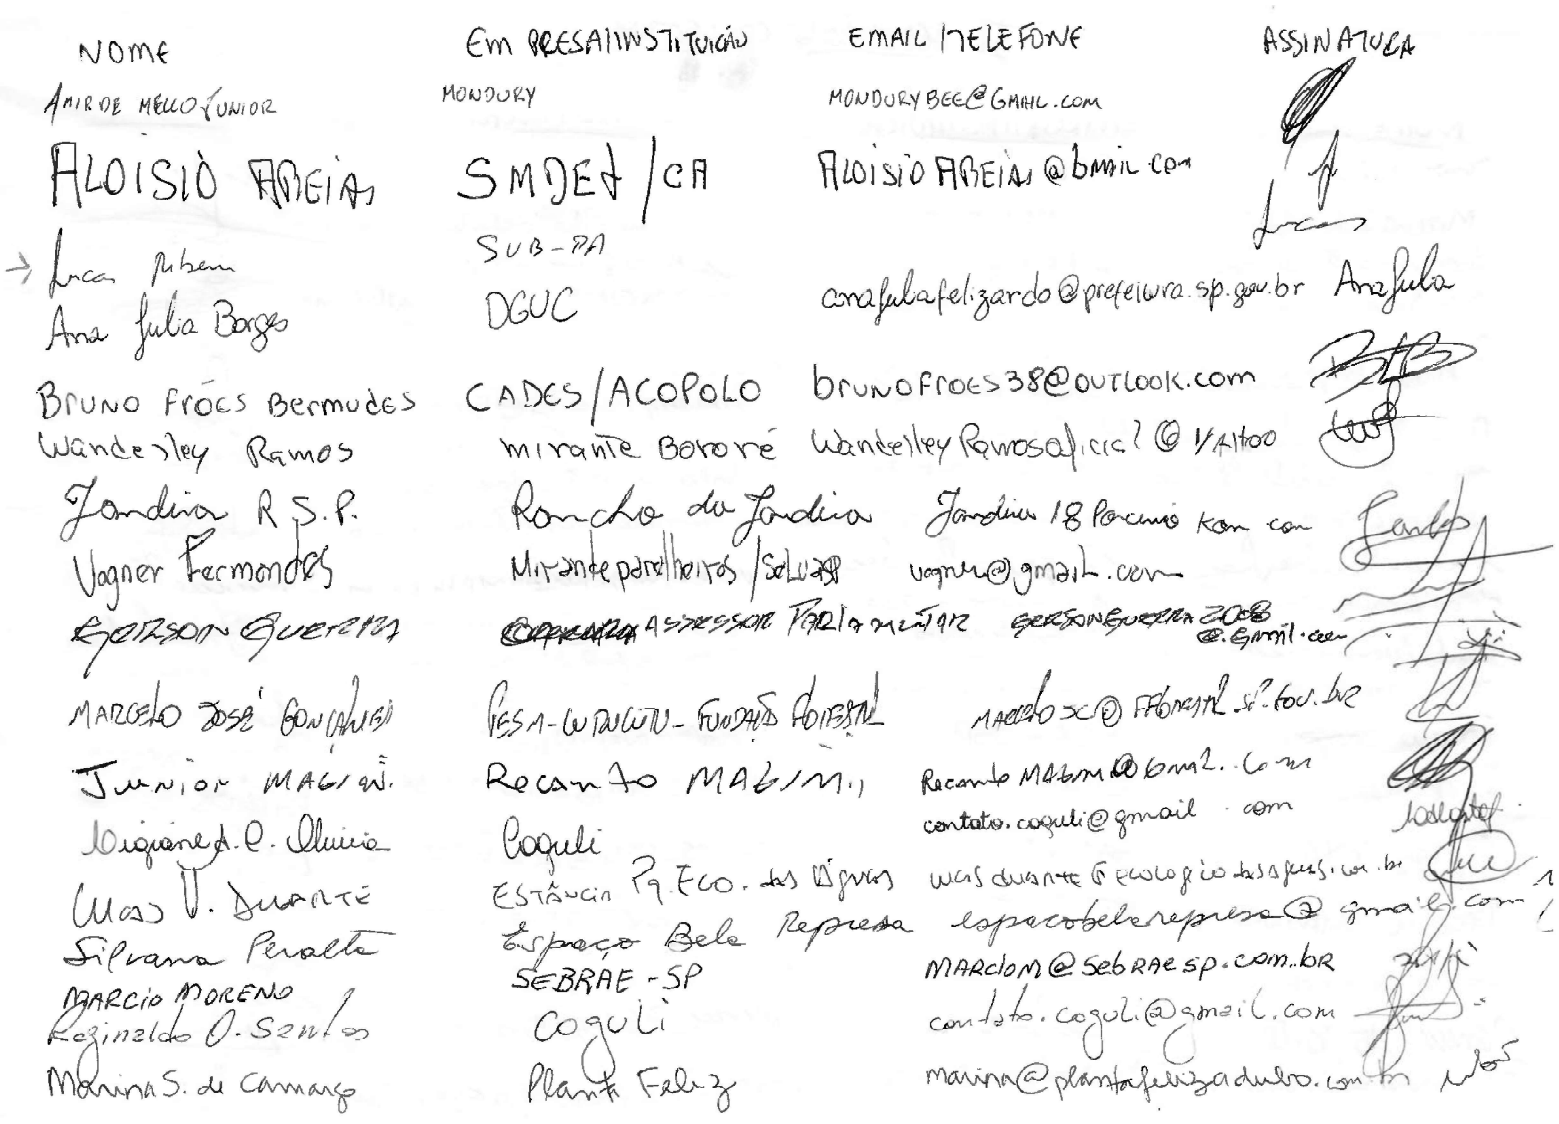 NOME EMPRESA/INSTITUIÇÃO EMAIL/TELEFONE ASSINATURA
AMIR DE MELLO JUNIOR MONDURY MONDURYBEE@GMAIL.COM
ALOISIO AREIAS SMDET/CA ALOISIO AREIAS@GMAIL.COM
→ Lucas SUB-PA Lucas
Ana Julia Borges DGUC anajuliafelizardo@prefeitura.sp.gov.br Ana Julia
Bruno Fróes Bermudes CADES/ACOPOLO brunofroes38@OUTLOOK.com
Wanderley Ramos Mirante Bororé WanderleyRamosoficial @ YAHOO
Jandira R S.P. Rancho da Jandira Jandira 18
Vagner Fernandes Mirante parelheiros / vagner@gmail.com
GERSON GUERRA ASSESSOR PARLAMENTAR GERSONGUERRA2008
@.Gmail.com
MARCELO JOSÉ GONÇALVES PESM-CURUCUTU-FUNDAÇÃO FLORESTAL
Junior MAGIM. Recanto MAGIM. Recanto MAGIM@Gmail.com
Ligiane A. C. Oliveira Coguli contato.coguli@gmail.com
Lucas V. DUARTE ESTÂNCIA Pq. Eco. das Águas
Silvana Peralta Espaço Bela Represa espacobelarepresa@gmail.com
MARCIO MORENO SEBRAE-SP MARCIOM@SebRAESP.com.bR
Reginaldo O. Santos COGULI contato.coguli@gmail.com
Marina S. de Camargo Planta Feliz marina@plantafelizadubo.com.br